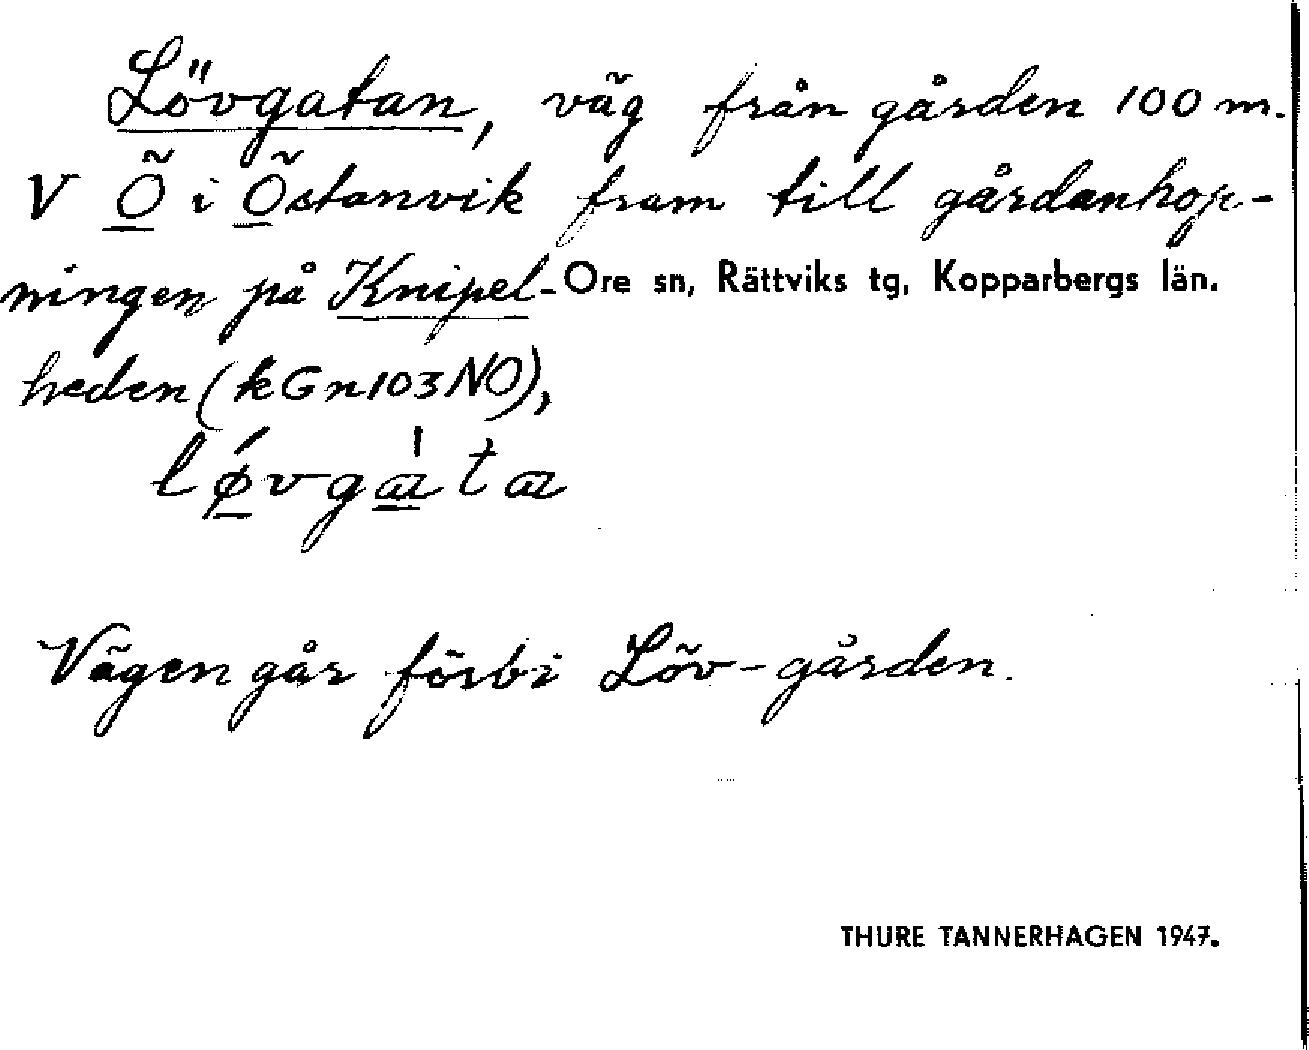 Lövgatan, väg från gården 100 m.
V Ö i Östanvik fram till gårdanhop-
ningen på Knipel- Ore sn, Rättviks tg, Kopparbergs län.
heden (k Gn 103 NO),
lǿvgáta
Vägen går förbi Löv-gården.
THURE TANNERHAGEN 1947.